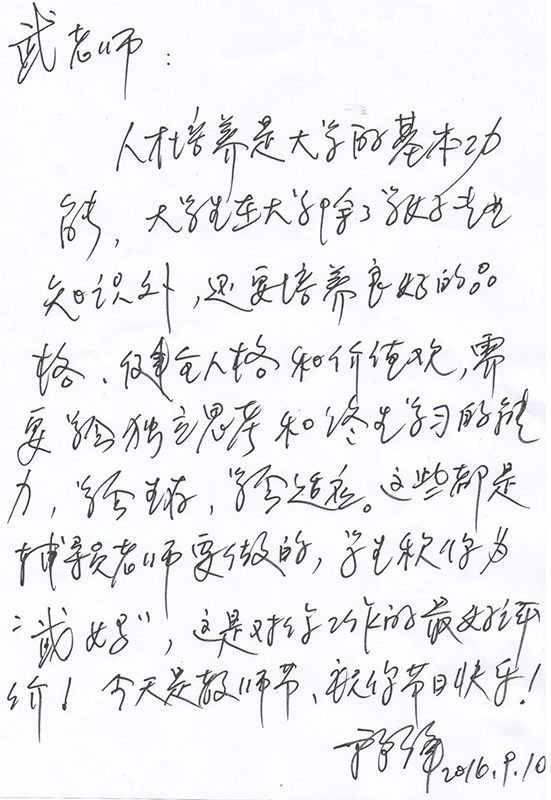 武老师：
人材培养是大学的基本功
能，大学生在大学中除了学好专业
知识外，还要培养良好的品
格、健全人格和价值观，需
要学会独立思考和终生学习的能
力，学会生存，学会适应。这些都是
辅导员老师要做的，学生称你为
“武妈”，这是对你工作的最好评
价！今天是教师节，祝你节日快乐！
2016.9.10